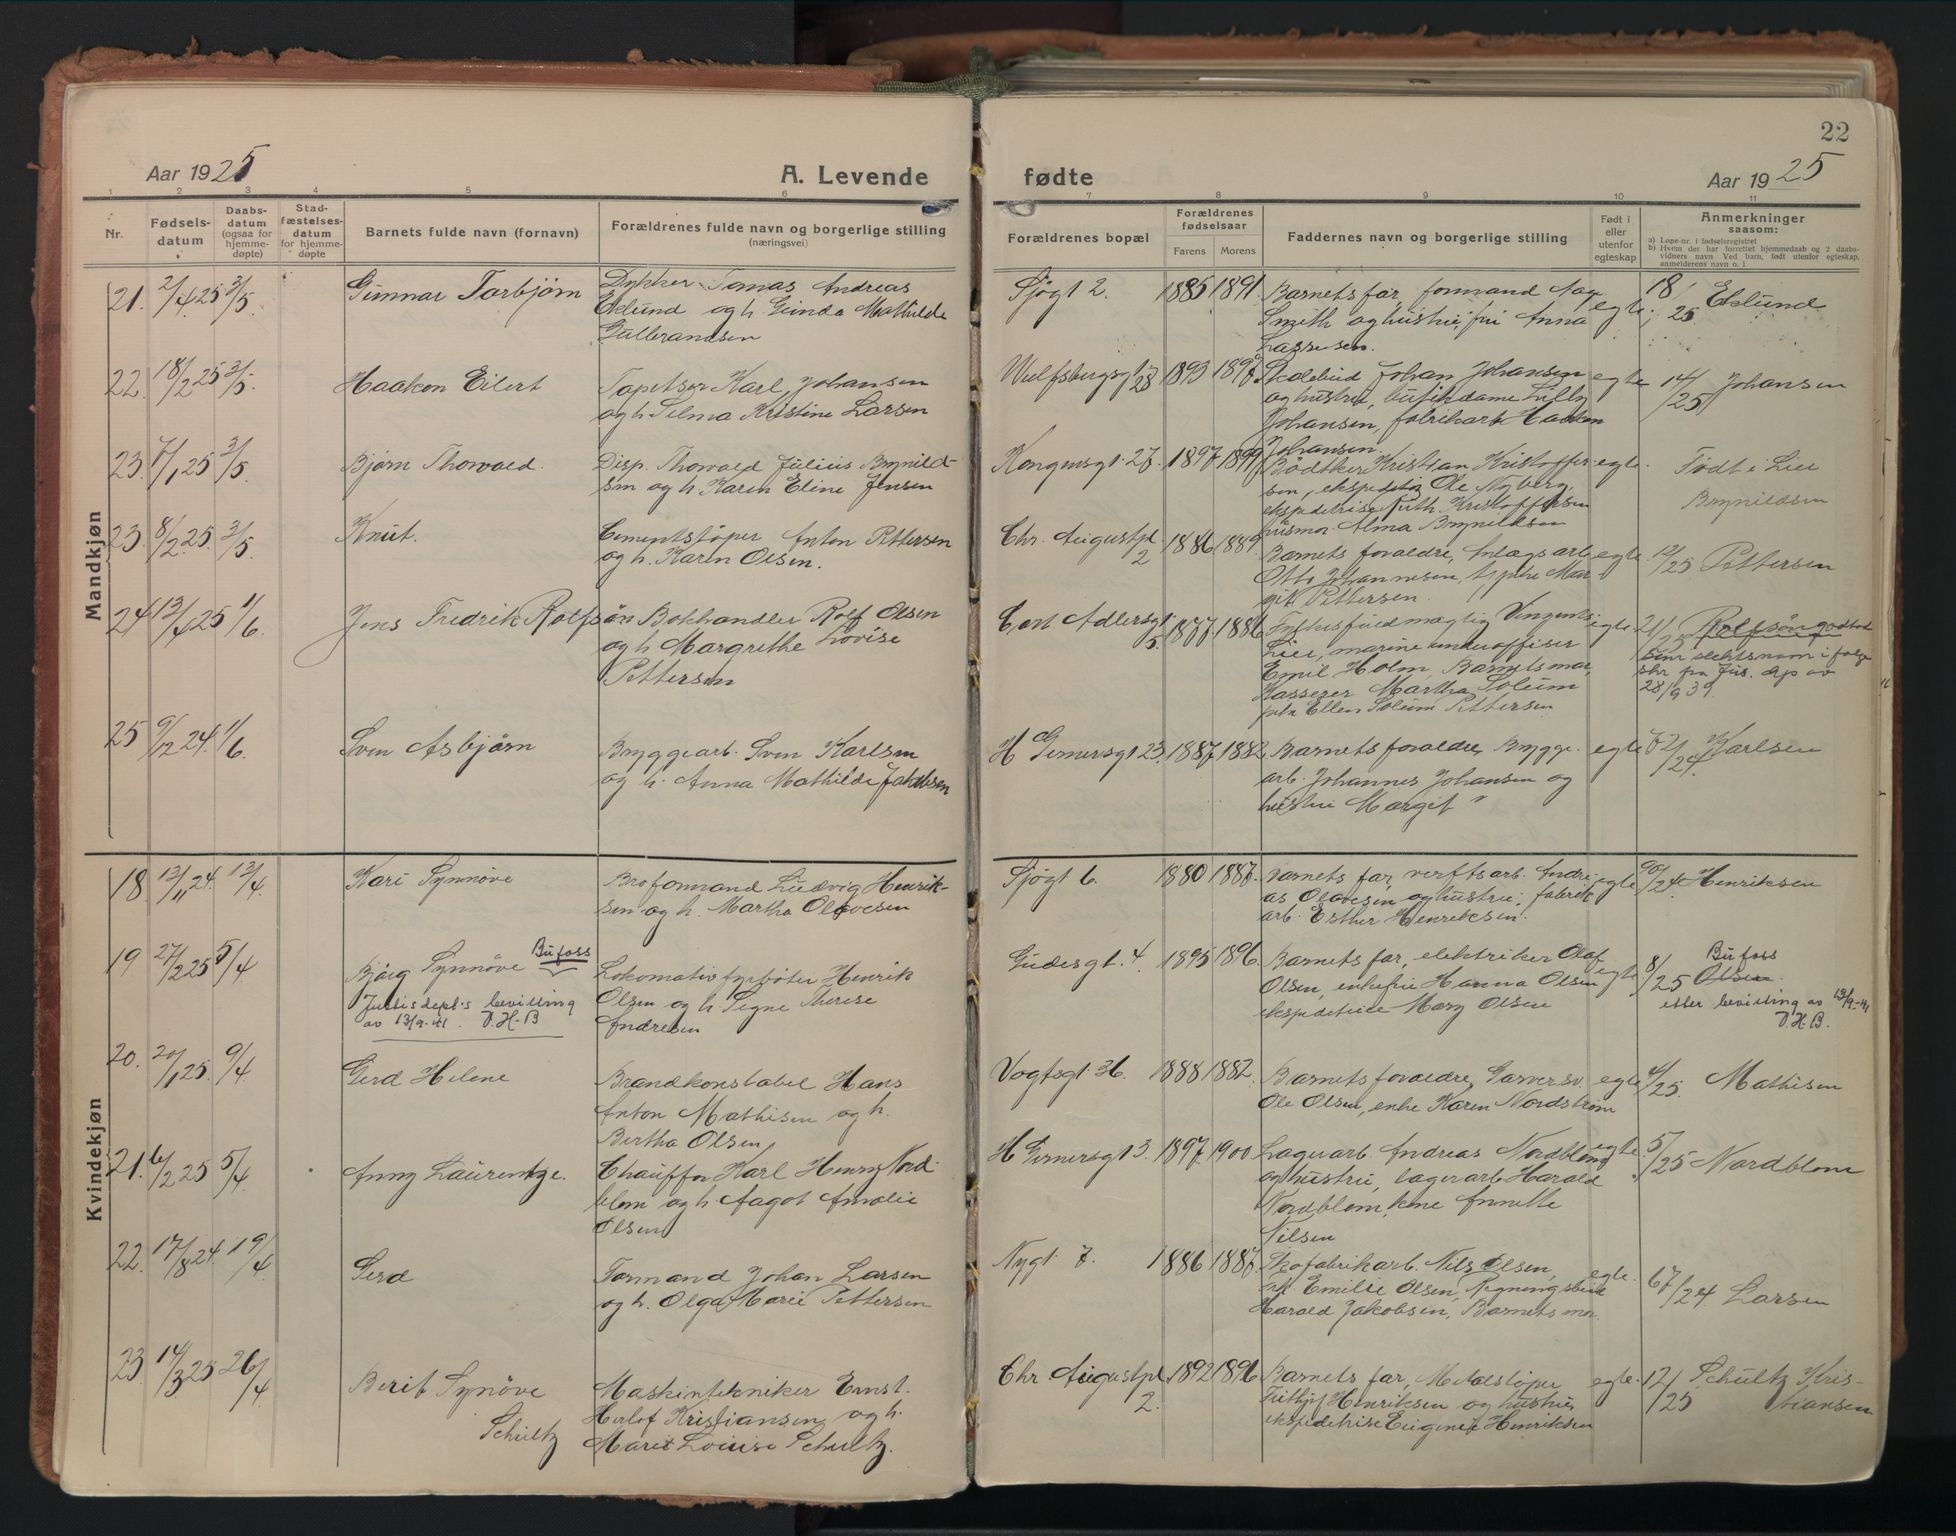 22
Aar 1925
A. Levende
fødte
Aar 1925
1 2 3 4 5 6 7 8 9 10 11
Nr.
Fødsels-
datum
Daabs-
datum
(ogsaa for
hjemme-
døpte)
Stad-
fæstelses-
datum
for hjemme-
døpte
Barnets fulde navn (fornavn)
Forældrenes fulde navn og borgerlige stilling
(næringsvei)
Forældrenes bopæl
Forældrenes
fødselsaar
Farens Morens
Faddernes navn og borgerlige stilling
Født i
eller
utenfor
egteskap
Anmerkninger
saasom:
a) Løpe-nr. i fødselsregistret
b) Hvem der har forrettet hjemmedaab og 2 daabs-
vidners navn. Ved barn, født utenfor egteskap,
anmelderens navn o. l
Mandkjøn
21. 2/4 25 3/5. Gunnar Torbjørn
Dykker Tomas Andreas
Eklund og h. Gunda Mathilde
Gulbrandsen
Sjøgt 2. 1885 1891
Barnets far, formand Aage
Smith og hustru, fru Anna
Lassesen.
egte. 18/25 Eklund
22. 18/2 25 3/5. Haakon Eilert
Tapetser Karl Johansen
og h. Selma Kristine Larsen
Wulfsbergsgt 28 1893 1898
Skolebud Johan Johansen
og hustru, butikdame Lilly
Johansen, fabrikarb Haakon
Johansen.
egte 14/25 Johansen
23. 7/1 25 3/5. Bjørn Thorvald.
Disp. Thorvald Julius Brynild-
sen og h. Karen Eline Jensen
Kongensgt. 27. 1897 1899
Bødtker Kristian Kristoffer-
sen, ekspeditør Ole Nyberg,
ekspeditrise Ruth Kristoffersen
husmor Alma Brynildsen
egte. Født i Lier
Brynildsen
23. 8/2 25. 3/5. Knut.
Cementstøper Anton Pettersen
og h. Karen Olsen.
Chr. Augustpl. 2 1886 1889
Barnets forældre, Anlægsarb
Otto Johannesen, Mar-
git Pettersen.
egte. 12/25 Pettersen
24 13/4 25 1/6. Jens Fredrik Rolfsøn
Bokhandler Rolf Olsen
og h. Margrethe Lovise
Pettersen
Cort Adlersgt 5. 1877 1886
Vingents
Lie, marineunderoffiser
Emil Holm, Barnets mor,
Kasserer Martha Solum
Ellen Solum Pettersen
egte. 21/25 Rolfsøn godtat
som slektsnavn i følge
skr fra Jus. dep av
28/9 39.
25 9/12 24. 1/6. Sven Asbjørn
Bryggearb. Sven Karlsen
og h. Anna Mathilde Jakobsen
H Gernersgt 23. 1887 1882
Barnets forældre, Brygge-
arb. Johannes Johansen og
hustru Margit "
egte 72/24. Karlsen
Kvindekjøn
18. 13/11 24. 13/4. Kari Synnøve
Broformand Ludvig Henrik-
sen og h. Martha Olavesen
Sjøgt 6. 1880 1887.
Barnets far, verftsarb. Andre-
as Olavesen og hustru, fabrik
arb. Esther Henriksen.
egte 90/24 Henriksen
19. 27/2 25 5/4 Bjørg Synnøve Bufoss
Justisdept's bevilling
av 13/9-41. D.H.B
Lokomotivfyrbøter Henrik
Olsen og h Signe Therese
Andresen
Gudesgt. 4. 1895 1896.
Barnets far, elektriker Olaf
Olsen, enkefru Hanna Olsen
ekspeditrice Mary Olsen
egte 8/25 Bufoss
Olsen
etter bevilling av 13/9-41
D.H.B.
20. 20/1 25. 9/4 Gerd Helene
Brandkonstabel Hans
Anton Mathisen og h.
Bertha Olsen,
Vogtsgt 36. 1888 1882.
Barnets forældre, Garversv
Ole Olsen, enke Karen Nordstrøm
egte 4/25. Mathisen
21. 6/2 25 5/4. Anny Laurentze.
Chauffør Karl Henry Nord-
blom og h Aagot Amalie
Olsen
H Gernersgt 3. 1897. 1900
Lagerarb. Andreas Nordblom
og hustru, lagerarb Harald
Nordblom, Annette
Nilsen
egte 5/25 Nordblom
22. 17/8 24. 19/4. Gerd
Formand Johan Larsen
og h. Olga Marie Pettersen
Nygt. 7. 1886 1887.
Skofabrikarb. Nils Olsen,
frk Emilie Olsen,
Harald Jakobsen, Barnets mor
egte. 67/24 Larsen
23. 14/3 25 26/4 Berit Synøve
Schultz
Maskintekniker Ernst
Herlof Kristiansen, og h.
Marie Louise Schultz.
Chr Augustpl 2. 1892 1896
Barnets far, Metalstøper
Fritjof Henriksen og hustru,
ekspeditrise Eugenie Henriksen
egte. 12/25 Schultz Kris-
tiansen